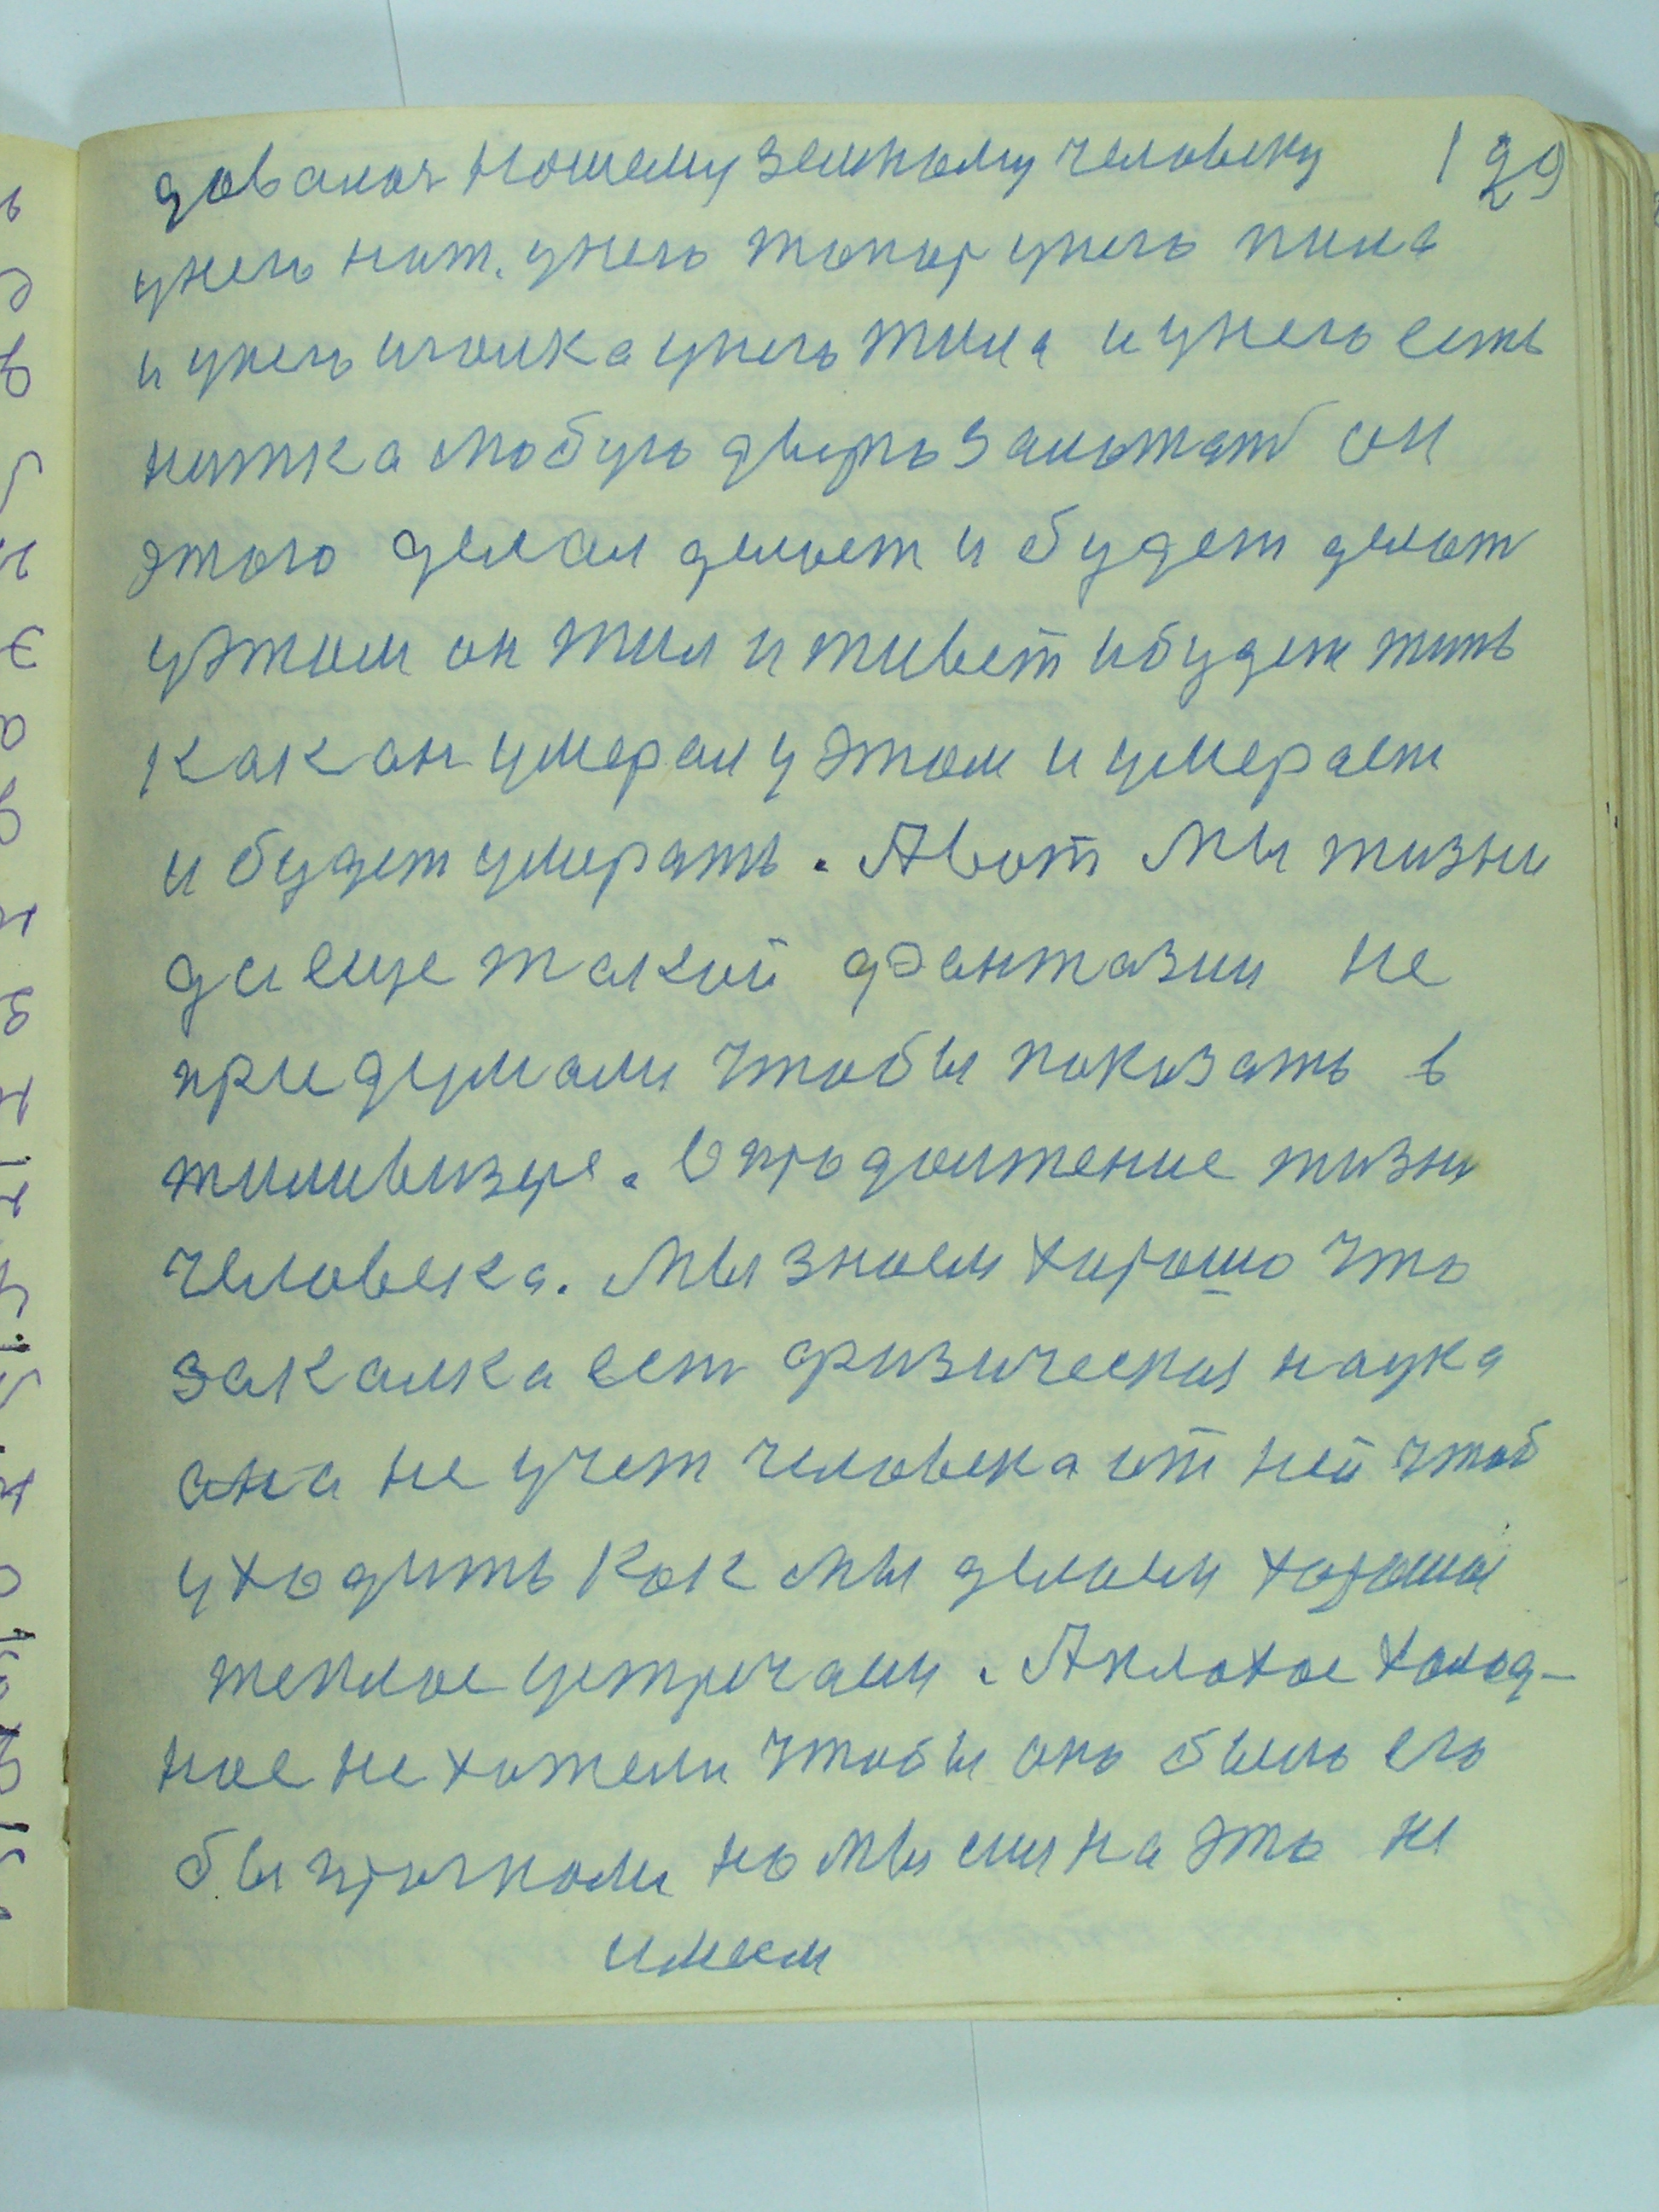 давалоч нашему земному человеку 129
унего нож. унего топор унего пила
и унего иголка унего шила и унего есть
нитка любую дверь залотат он
этого делал делает и будет делат
уэтом он жил и живет и будет жить
как он умерал уэтом и умерает
и будет умерать. Авот мы жизни
да еще такой фантазии не
придумали чтобы показать в
тиливизре. Впродолжение жизни
человека. Мы знаем хорошо что
закалка ест физическия наука
ана не учет человека от ней чтоб
уходить как мы делаем хорошое
теплое устречаем. Аплохое холод-
ное не хотели чтобы оно было его
бы прогнали но мы сил на это ни
имеем